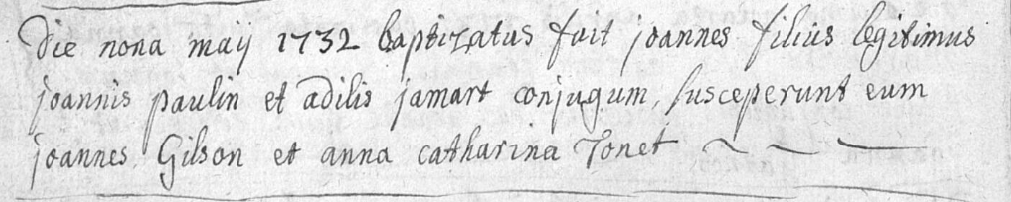 die nona maij 1732 baptizatus fuit joannes filius legitimus
joannis paulin et adilis jamart conjugum, susceperunt eum
joannes Gilson et anna catharina Tonet